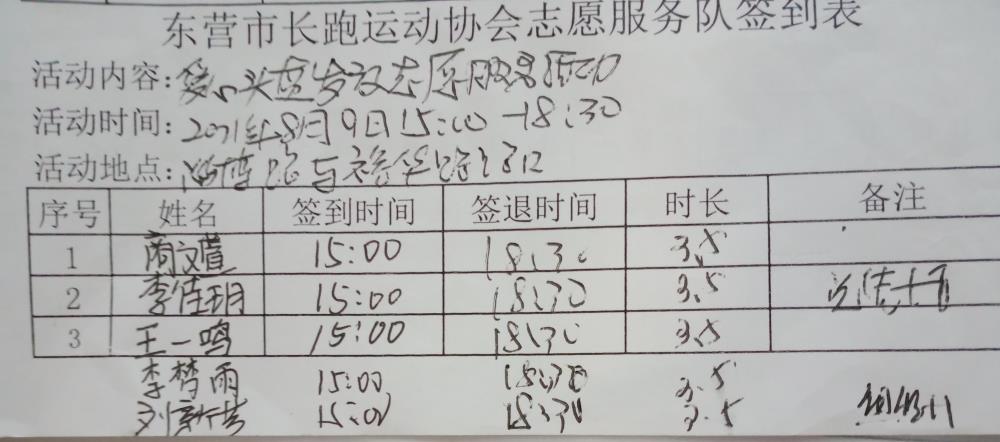 东营市长跑运动协会志愿服务队签到表
活动内容:爱心头盔发放志愿服务活动
活动时间:2021年8月9日15:00-18:30
活动地点:淄博路与裕华路路口
序号 姓名 签到时间 签退时间 时长 备注
1 商文萱 15:00 18:30 3.5
2 李佳玥 15:00 18:30 3.5
3 王一鸣 15:00 18:30 3.5
李梦雨 15:00 18:30 3.5
刘 15:00 18:30 3.5